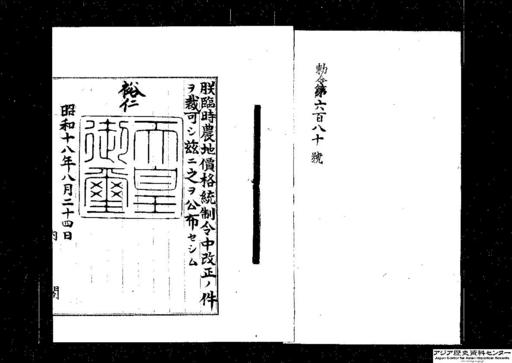 勅令第六百八十號
朕臨時農地價格統制令中改正ノ件
ヲ裁可シ玆ニ之ヲ公布セシム
裕仁
天皇
御璽
昭和十八年八月二十四日
内閣
アジア歴史資料センター
Japan Center for Asian Historical Records